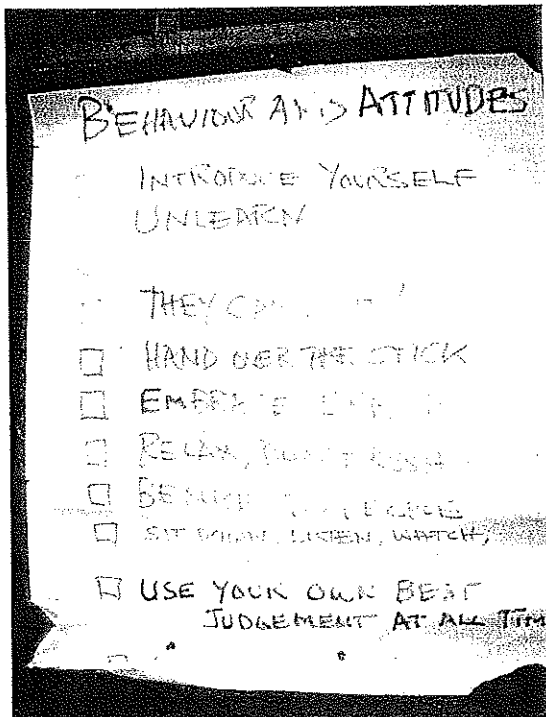 BEHAVIOUR AND ATTITUDES
INTRODUCE YOURSELF
UNLEARN
THEY CAN
HAND OVER THE STICK
EMBRACE
RELAX, DON'T RUSH
PEOPLE
SIT DOWN, LISTEN, WATCH,
USE YOUR OWN BEST
JUDGEMENT AT ALL TIM